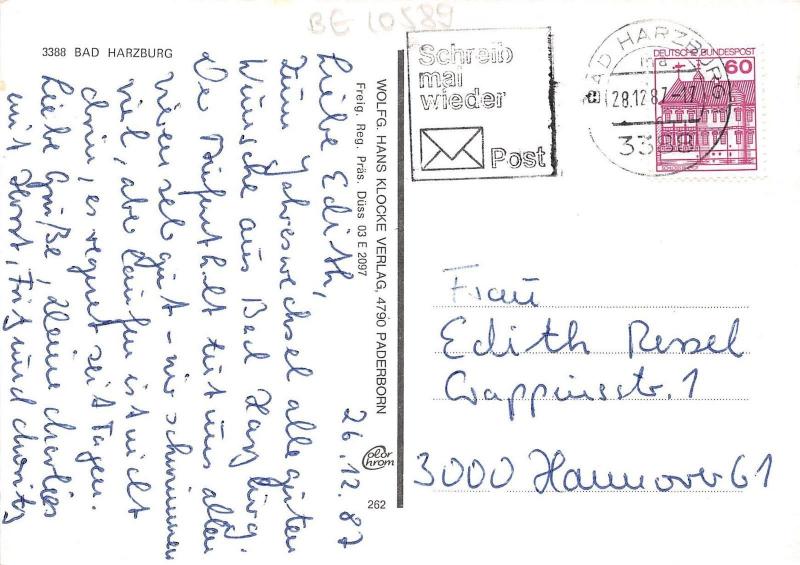 BE 10589
3388 BAD HARZBURG
26.12.87
Liebe Edith,
zum Jahreswechsel alle guten
Wünsche aus Bad Harzburg.
Der Aufenthalt tut uns allen
vieren sehr gut - wir schwimmen
viel, aber laufen ist nicht
drin, es regnet seit Tagen.
Liebe Grüße, Deine
mit Horst, Fritz und
WOLFG. HANS KLOCKE VERLAG, 4790 PADERBORN
Freig. Reg. Präs. Düss 03 E 2097
Color
chrom
262
Schreib
mal
wieder
Post
BAD HARZBURG
28.12.87-17
3388
DEUTSCHE BUNDESPOST
60
Frau
Edith Ressel
3000 Hannover 61